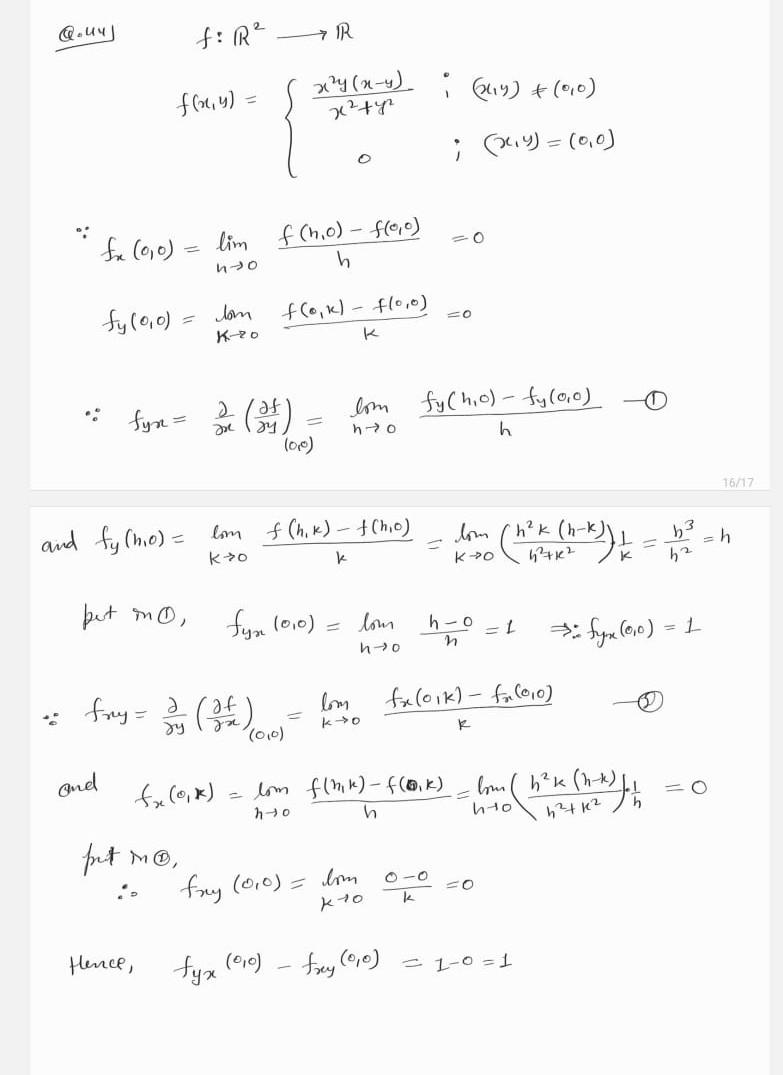 Q.44)  f: ℝ² ⟶ ℝ
f(x,y) = { x²y(x-y) / x²+y² ; (x,y) ≠ (0,0)
0 ; (x,y) = (0,0)
∵ fx (0,0) = lim h→0 f(h,0) - f(0,0) / h = 0
fy (0,0) = lim k→0 f(0,k) - f(0,0) / k = 0
∵ fyx = ∂/∂x (∂f/∂y)(0,0) = lim h→0 fy(h,0) - fy(0,0) / h —①
16/17
and fy(h,0) = lim k→0 f(h,k) - f(h,0) / k = lim k→0 (h²k (h-k) / h²+k²) 1/k = h³/h² = h
put in ①, fyx (0,0) = lim h→0 h-0 / h = 1 ⇒∴ fyx(0,0) = 1
∵ fxy = ∂/∂y (∂f/∂x)(0,0) = lim k→0 fx(0,k) - fx(0,0) / k —②
and fx(0,k) = lim h→0 f(h,k) - f(0,k) / h = lim h→0 (h²k (h-k) / h²+k²) · 1/h = 0
put in ②,
∴ fxy (0,0) = lim k→0 0-0 / k = 0
Hence, fyx (0,0) - fxy (0,0) = 1-0 = 1